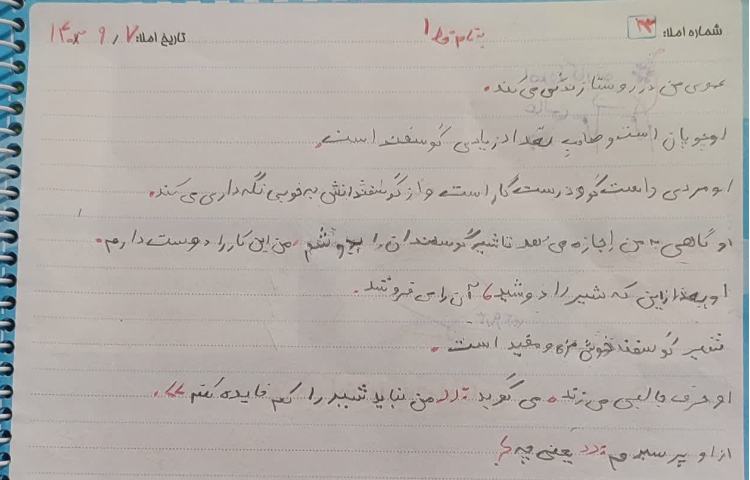 شماره املا: ۲۳ به نام خدا تاریخ املا: ۱۴۰۳/۹/۷
عموی من در روستا زندگی می‌کند.
او چوپان است و صاحب تعداد زیادی گوسفند است.
او مردی راست‌گو و درست‌کار است و از گوسفندانش به خوبی نگه‌داری می‌کند.
او گاهی به من اجازه می‌دهد تا شیر گوسفندان را بدوشم. من این کار را دوست دارم.
او بعد از این که شیر را دوشید، آن را می‌فروشد.
شیر گوسفند خوش‌مزه و مفید است.
او حرف جالبی می‌زند. می‌گوید: «من نباید شیر را کم فایده کنم».
از او پرسیدم: «یعنی چه؟